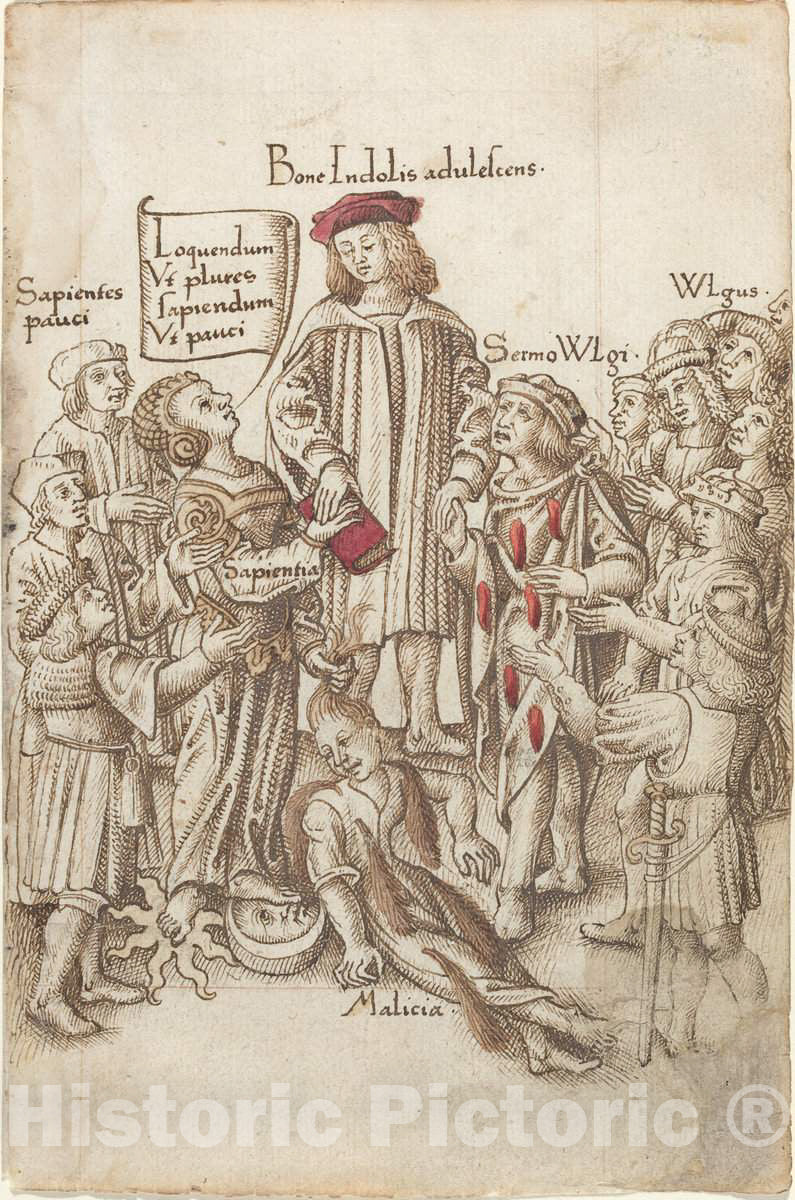 Bone Indolis adulescens.
Loquendum
Vt plures
sapiendum
Vt pauci
Sapientes
pauci
WLgus.
Sermo WLgi.
Sapientia
Malicia.
Historic Pictoric ®